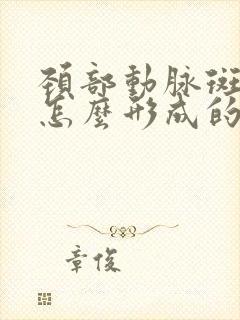 頚部動脉斑
怎麼形成的
章俊